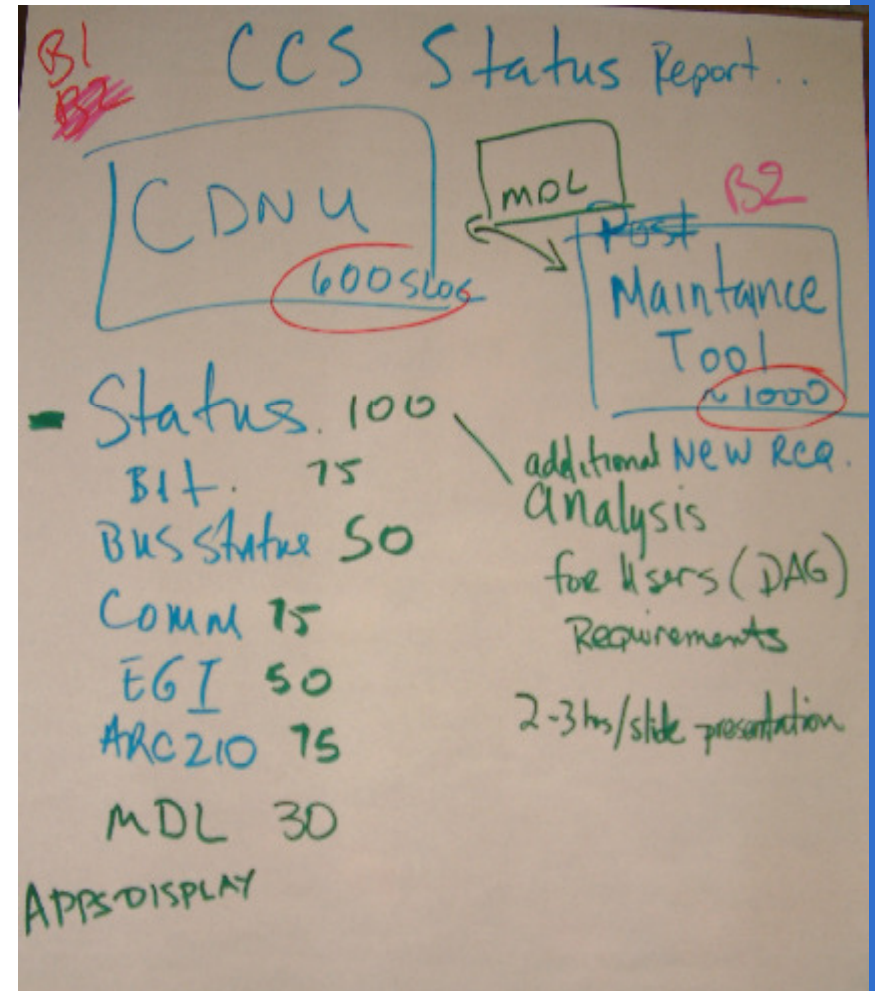 B1
B2
CCS Status Report..
CDNU
600 SLOC
MDL
B2
Post
Maintance
Tool
~ 1000
Status. 100
BIt. 75
Bus Status 50
Comm 75
EGI 50
ARC210 75
MDL 30
APPS DISPLAY
additional New Req.
analysis
for Users (DAG)
Requirements
2-3 hrs/slide presentation